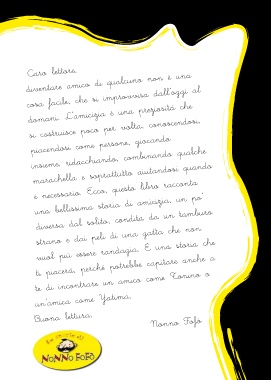 Caro lettore,
diventare amico di qualcuno non è una
cosa facile, che si improvvisa dall'oggi al
domani. L'amicizia è una preziosità che
si costruisce poco per volta, conoscendosi,
piacendosi come persone, giocando
insieme, ridacchiando, combinando qualche
marachella e soprattutto aiutandosi quando
è necessario. Ecco, questo libro racconta
una bellissima storia di amicizia, un po'
diversa dal solito, condita da un tamburo
strano e dai peli di una gatta che non
vuol più essere randagia. È una storia che
ti piacerà, perché potrebbe capitare anche a
te di incontrare un amico come Tonino o
un'amica come Yatima.
Buona lettura.
Nonno Fofò
Le storie di
NONNO FOFÒ